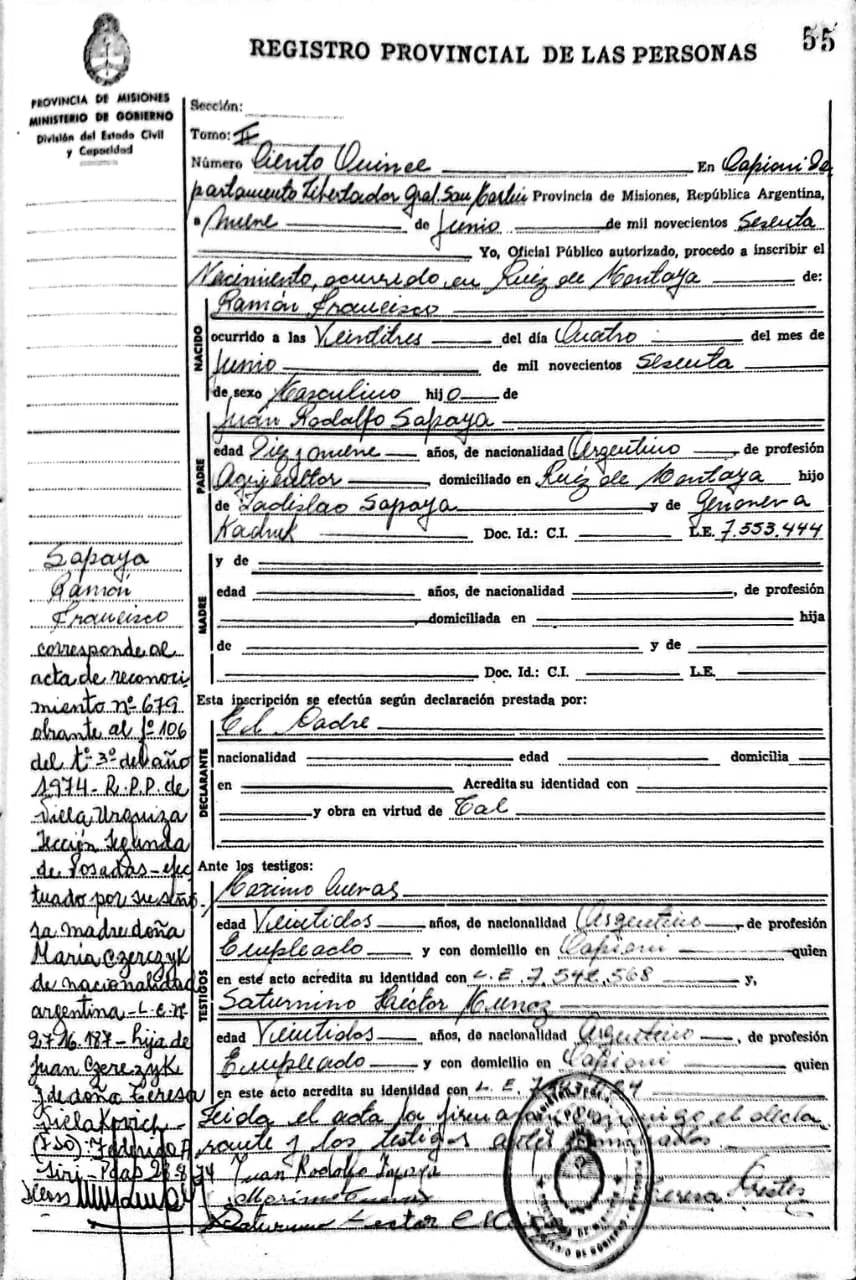 55
REGISTRO PROVINCIAL DE LAS PERSONAS
PROVINCIA DE MISIONES
MINISTERIO DE GOBIERNO
División del Estado Civil
y Capacidad
Sección:
Tomo: II
Número Ciento Quince En Capioví De
partamento Libertador Gral. San Martín Provincia de Misiones, República Argentina,
a nueve de Junio de mil novecientos Sesenta
Yo, Oficial Público autorizado, procedo a inscribir el
Nacimiento, ocurrido en Ruiz de Montoya de:
NACIDO
Ramón Francisco
ocurrido a las Veintitres del día Cuatro del mes de
Junio de mil novecientos Sesenta
de sexo Masculino hijo de
PADRE
Juan Rodolfo Sapaya
edad Diez y nueve años, de nacionalidad Argentino, de profesión
Agricultor domiciliado en Ruiz de Montoya hijo
de Ladislao Sapaya y de Genoneva
Kadruk Doc. Id.: C.I. L.E. 7.553.444
MADRE
y de
edad años, de nacionalidad, de profesión
, domiciliada en hija
de y de
Doc. Id.: C.I. L.E.
Esta inscripción se efectúa según declaración prestada por:
DECLARANTE
El Padre
nacionalidad edad domicilia
en Acredita su identidad con
y obra en virtud de Tal
Ante los testigos:
TESTIGOS
Maximo Cuevas
edad Veintidos años, de nacionalidad Argentino, de profesión
Empleado y con domicilio en Capioví quien
en este acto acredita su identidad con L.E. 7.542.568 y,
Saturnino Héctor Munoz
edad Veintidos años, de nacionalidad Argentino, de profesión
Empleado y con domicilio en Capioví quien
en este acto acredita su identidad con L.E.
Leida el acta la firma el decla
rante y los testigos antes
Juan Rodolfo Sapaya
Sapaya
Ramón
Francisco
corresponde al
acta de reconoci
miento nº 679
obrante al fº 106
del tº 3º del año
1974 - R.P.P. de
Villa Urquiza
Sección Segunda
de Posadas - efec
tuado por su seño
ra madre doña
María Czerczyk
de nacionalidad
argentina - L.C. nº
2.716.187 - hija de
Juan Czereczyk
y de doña Teresa
Federico A
Siri - Pdas 28-8-74